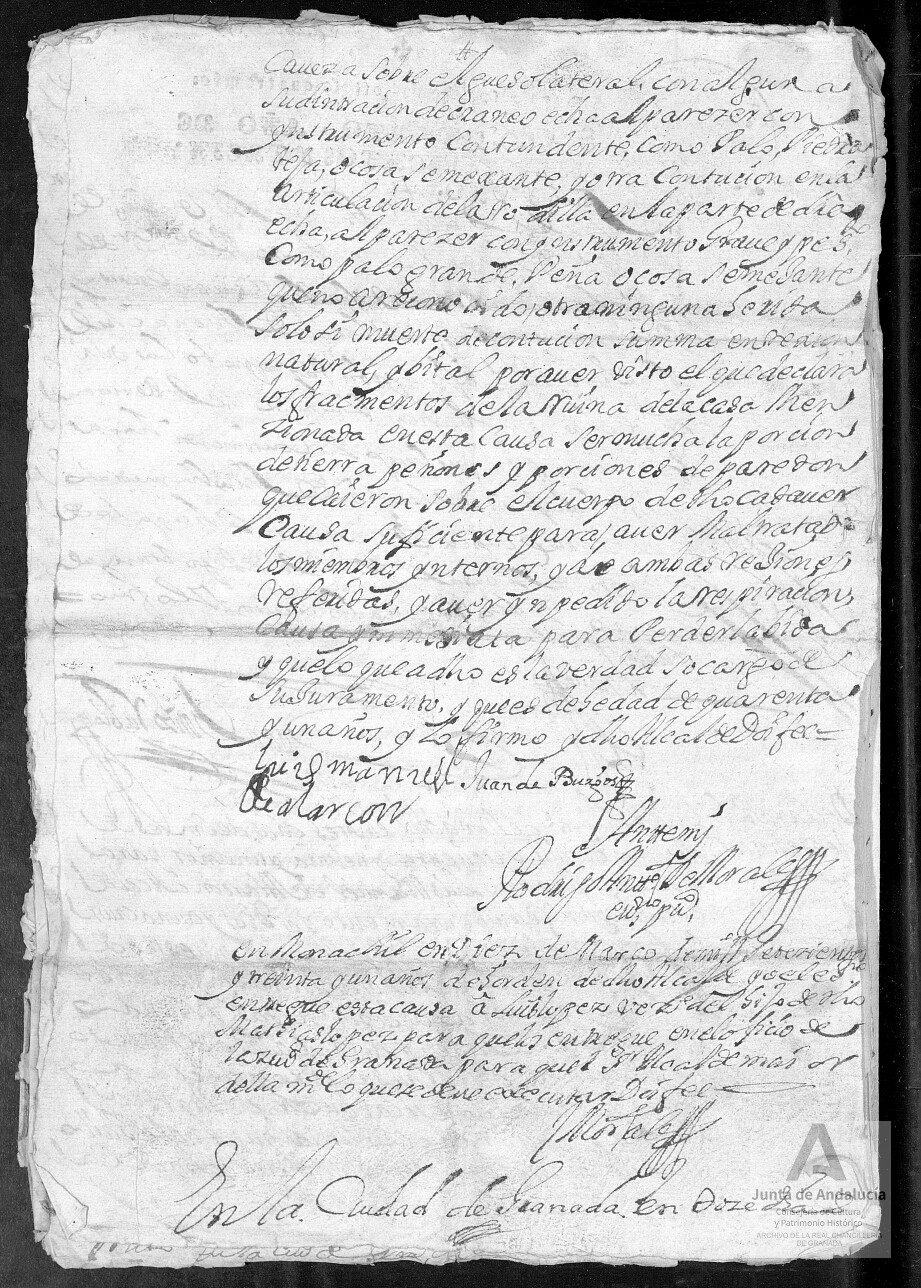 Caveza sobre el gueso lateral, con alguna
sudintracion de craneo echa al parezer con
ynstrumento Contundente, como Palo, Piedra
teja, o cosa semexante, y otra Contucion en la
articulacion de la rodilla en la parte de
echa, al parezer con ynstrumento Grave y
Como palo grande, Peña o cosa semejante
que no a reconosido otra ninguna herida
solo si muerte de contucion summa en rexion
natural, y bital por aver visto el que declara
los fracmentos de la Ruina de la casa Men
zionada en esta Causa ser mucha la porcion
de tierra peñones y porciones de paredon
que caieron sobre el cuerpo de dho Cadaver
Causa suficiente para aver Maltratado
los miembros ynternos, y de ambas rejiones
referidas, y aver ynpedido la respiracion
Causa ynmediata para Perder la bida
y que lo que a dho es la verdad so cargo de
su Juramento, y que es de hedad de quarenta
y un años, y lo firmo y dho Alcalde Doi fee =
luis manuel Juan de Burgos
de alarcon
Ante mi
Rodrigo Antto de Morales
esno puco
en Monachil en diez de Marzo de mill setezientos
y treinta y un años de horden de dho Alcalde yo el es
entregue esta causa a Luis lopez vezo del hijo de dho
Mathias lopez para que lo entregue en el ofizio de
la ziud de Granada para que el Sr Alcalde maior
della mde lo que se deve executar Doi fee
Morales
En la Ciudad de Granada en Doze de
Junta de Andalucía
Consejería de Cultura
y Patrimonio Histórico
ARCHIVO DE LA REAL CHANCILLERÍA
DE GRANADA